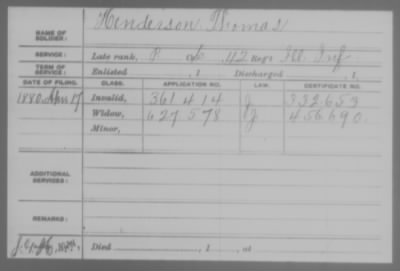 NAME OF SOLDIER: Henderson, Thomas
SERVICE: Late rank, P Co. 42 Reg't Ill. Inf
TERM OF SERVICE: Enlisted , 1 Discharged , 1
DATE OF FILING. CLASS. APPLICATION NO. LAW. CERTIFICATE NO.
1880 17 Invalid, 361 414 J 332.653
Widow, 627 578 J 456.690.
Minor,
ADDITIONAL SERVICES:
REMARKS:
Died , 1 , at